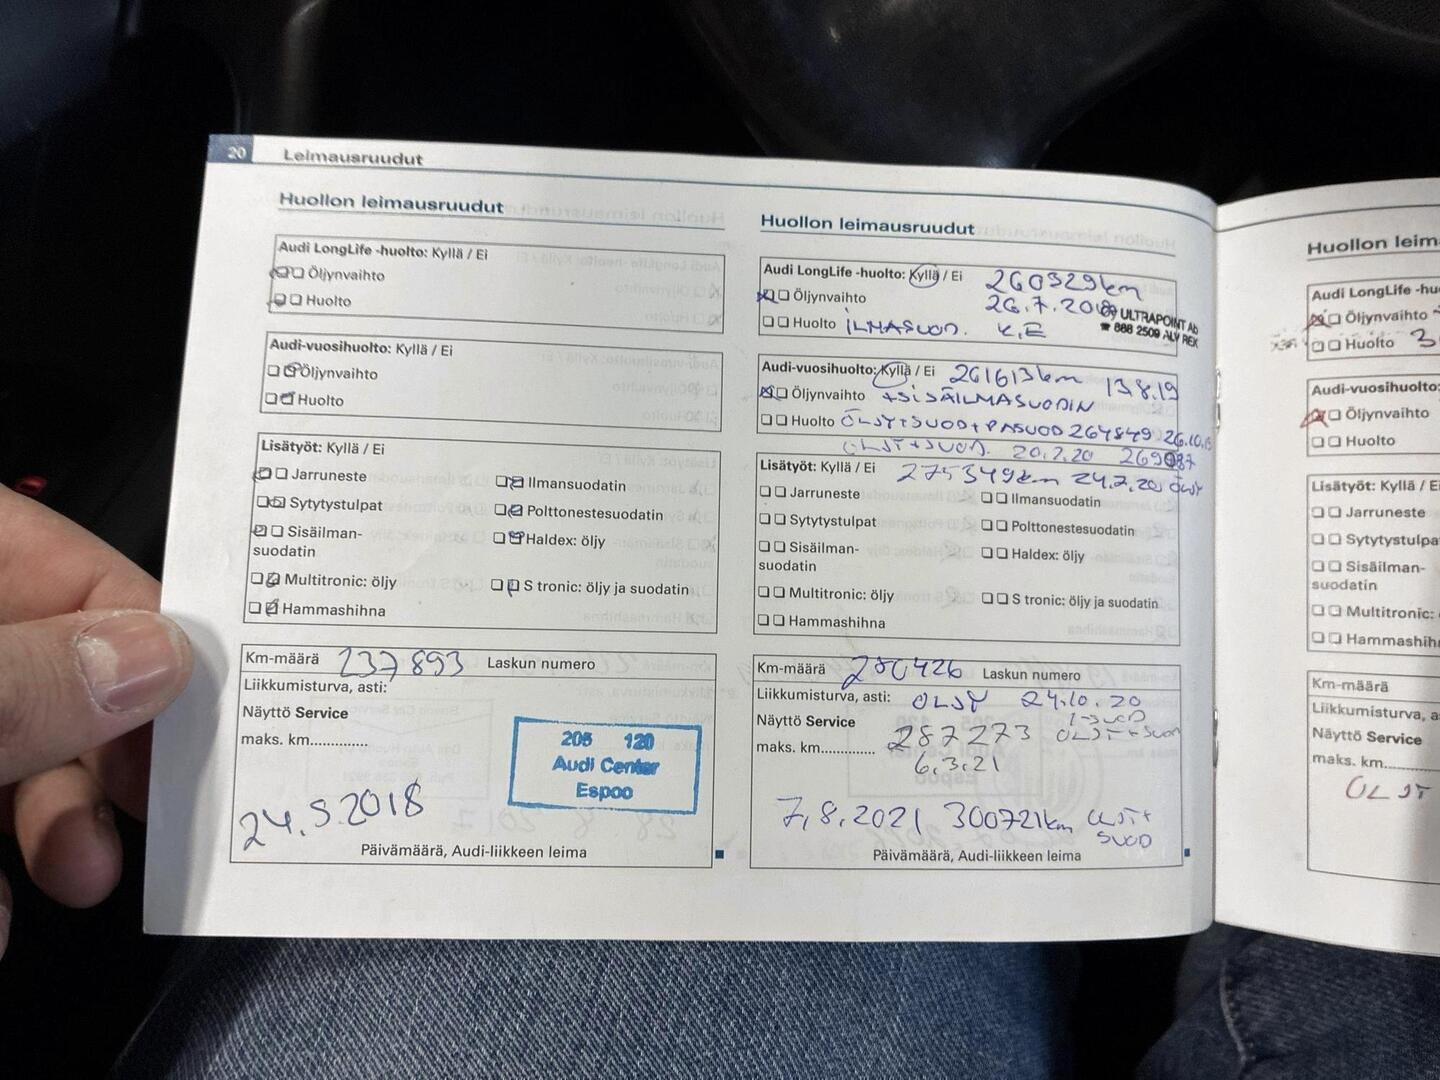 20 Leimausruudut
Huollon leimausruudut
Audi LongLife -huolto: Kyllä / Ei
Öljynvaihto
Huolto
Audi-vuosihuolto: Kyllä / Ei
Öljynvaihto
Huolto
Lisätyöt: Kyllä / Ei
Jarruneste
Ilmansuodatin
Sytytystulpat
Polttonestesuodatin
Sisäilman-
suodatin
Haldex: öljy
Multitronic: öljy
S tronic: öljy ja suodatin
Hammashihna
Km-määrä 237 893 Laskun numero
Liikkumisturva, asti:
Näyttö Service
maks. km..............
205 120
Audi Center
Espoo
24.5.2018
Päivämäärä, Audi-liikkeen leima
Huollon leimausruudut
Audi LongLife -huolto: Kyllä / Ei 260329km
Öljynvaihto 26.7.2019
ULTRAPOINT Ab
Huolto ILMASUOD. K.E
Audi-vuosihuolto: Kyllä / Ei 261613km 13.8.19
Öljynvaihto +SISÄILMASUODIN
Huolto ÖLJY+SUOD+PASUOD 264849
ÖLJY+SUOD. 20.2.20 269087
Lisätyöt: Kyllä / Ei 275349km 24.7.20 ÖLJY
Jarruneste
Ilmansuodatin
Sytytystulpat
Polttonestesuodatin
Sisäilman-
suodatin
Haldex: öljy
Multitronic: öljy
S tronic: öljy ja suodatin
Hammashihna
Km-määrä 280426 Laskun numero
Liikkumisturva, asti: ÖLJY 24.10.20
Näyttö Service
287273 ÖLJY+SUOD
maks. km..............
6.3.21
7.8.2021 300721km ÖLJY+
SUOD
Päivämäärä, Audi-liikkeen leima
Huollon leim
Audi LongLife -hu
Öljynvaihto
Huolto 3
Audi-vuosihuolto:
Öljynvaihto
Huolto
Lisätyöt: Kyllä / E
Jarruneste
Sytytystulpa
Sisäilman-
suodatin
Multitronic:
Hammashih
Km-määrä
Liikkumisturva, a
Näyttö Service
maks. km
ÖLJY